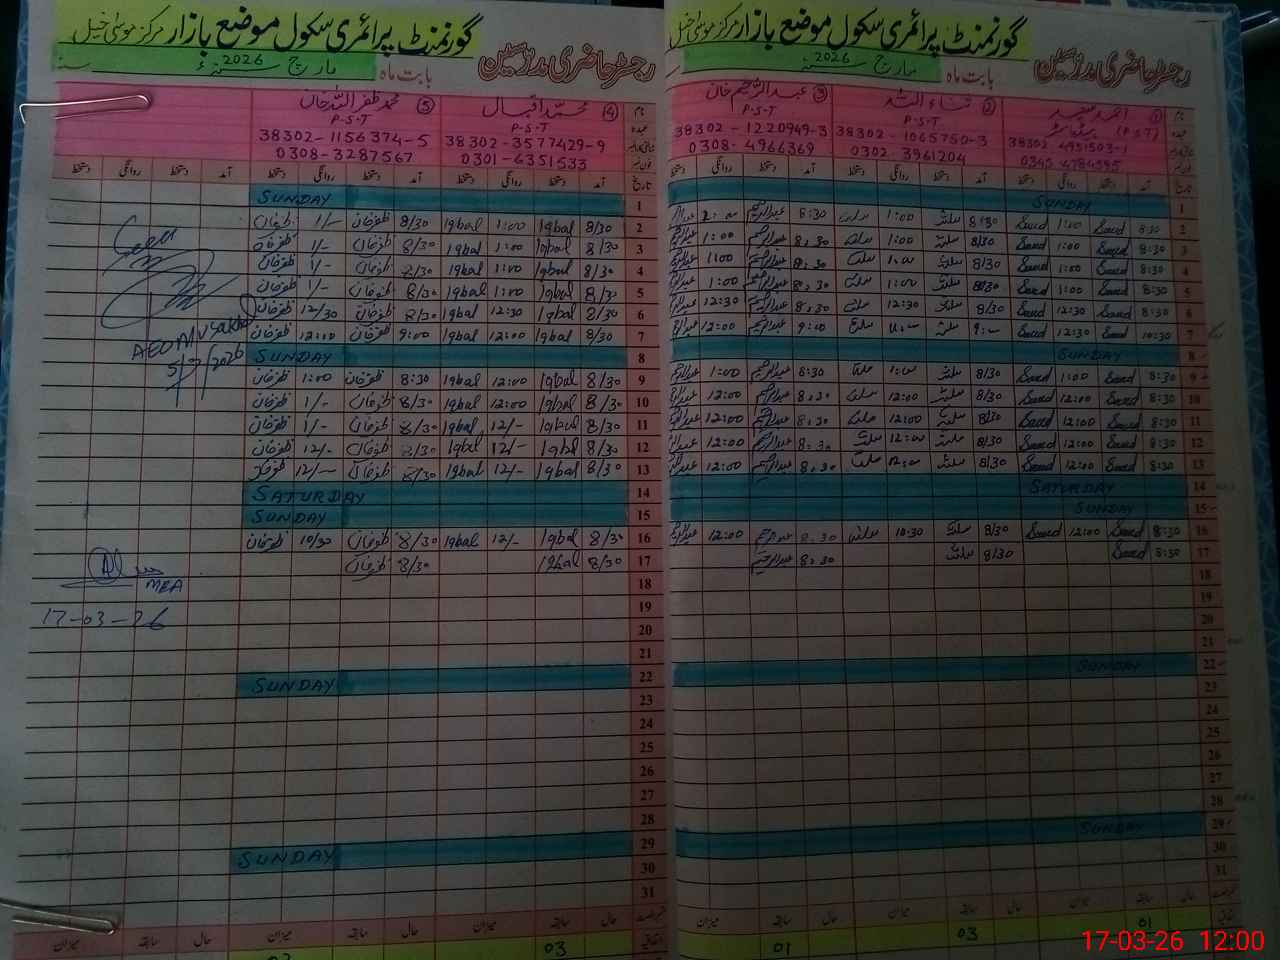 گورنمنٹ پرائمری سکول موضع بازار مرکز موسیٰ خیل
رجسٹر حاضری مدرسین بابت ماہ مارچ 2026ء
نام ① احمد سعید ② ثناء اللہ ③ عبدالرحیم خان
عہدہ (PST) P-S-T P-S-T
38302 4951503-1 38302-1065750-3 38302-1220949-3
0345 4784595 0302-3961204 0308-4966369
تاریخ آمد دستخط روانگی دستخط آمد دستخط روانگی دستخط آمد دستخط روانگی دستخط
1 SUNDAY
2 8:30 Saeed 1:00 Saeed 8/30 1:00 8:30 عبدالرحیم
3 8:30 Saeed 1:00 Saeed 8/30 1:00 8:30 عبدالرحیم 1:00
4 8:30 Saeed 1:00 Saeed 8/30 8:30 عبدالرحیم 1:00
5 8:30 Saeed 1:00 Saeed 8/30 1:00 8:30 عبدالرحیم 1:00
6 8:30 Saeed 12:30 Saeed 8/30 12:30 8:30 عبدالرحیم 12:30
7 10:30 Saeed 12:30 Saeed 9:00 عبدالرحیم 12:00
8 SUNDAY
9 8:30 Saeed 1:00 Saeed 8/30 8:30 عبدالرحیم 1:00
10 8:30 Saeed 12:00 Saeed 8/30 12:00 8:30 عبدالرحیم 12:00
11 8:30 Saeed 12:00 Saeed 8/30 12:00 8:30 عبدالرحیم 12:00
12 8:30 Saeed 12:00 Saeed 8/30 12:00 8:30 عبدالرحیم 12:00
13 8:30 Saeed 12:00 Saeed 8/30 12:00 8:30 عبدالرحیم 12:00
14 SATURDAY
15 SUNDAY
16 8:30 Saeed 12:00 Saeed 8/30 10:30 8:30 عبدالرحیم 12:00
17 8:30 Saeed 8/30 8:30 عبدالرحیم
18
19
20
21
22 SUNDAY
23
24
25
26
27
28
29 SUNDAY
30
31
حال سابقہ میزان حال سابقہ میزان حال سابقہ میزان
01 03 01
گورنمنٹ پرائمری سکول موضع بازار مرکز موسیٰ خیل
رجسٹر حاضری مدرسین بابت ماہ مارچ 2026ء
نام ④ محمد اقبال ⑤ محمد ظفر اللہ خان
عہدہ P-S-T P-S-T
38302-3577429-9 38302-1156374-5
0301-6351533 0308-3287567
تاریخ آمد دستخط روانگی دستخط آمد دستخط روانگی دستخط آمد دستخط روانگی دستخط
1 SUNDAY
2 8/30 Iqbal 1:00 Iqbal 8/30 ظفرخان 1/- ظفرخان
3 8/30 Iqbal 1:00 Iqbal 8/30 ظفرخان 1/- ظفرخان
4 8/30 Iqbal 1:00 Iqbal 8/30 ظفرخان 1/- ظفرخان
5 8/30 Iqbal 1:00 Iqbal 8/30 ظفرخان 1/- ظفرخان
6 8/30 Iqbal 12:30 Iqbal 8/30 ظفرخان 12/30 ظفرخان
7 8/30 Iqbal 12:00 Iqbal 9:00 ظفرخان 12:00 ظفرخان
8 SUNDAY
9 8/30 Iqbal 12:00 Iqbal 8:30 ظفرخان 1:00 ظفرخان
10 8/30 Iqbal 12:00 Iqbal 8/30 ظفرخان 1/- ظفرخان
11 8/30 Iqbal 12/- Iqbal 8/30 ظفرخان 1/- ظفرخان
12 8/30 Iqbal 12/- Iqbal 8/30 ظفرخان 12/- ظفرخان
13 8/30 Iqbal 12/- Iqbal 8/30 ظفرخان 12/-
14 SATURDAY
15 SUNDAY
16 8/30 Iqbal 12/- Iqbal 8/30 ظفرخان 10/30 ظفرخان
17 8/30 Iqbal 8/30 ظفرخان
18
19
20
21
22 SUNDAY
23
24
25
26
27
28
29 SUNDAY
30
31
حال سابقہ میزان حال سابقہ میزان حال سابقہ میزان
03
AEO
5/3/2026
MEA
17-03-26
17-03-26 12:00